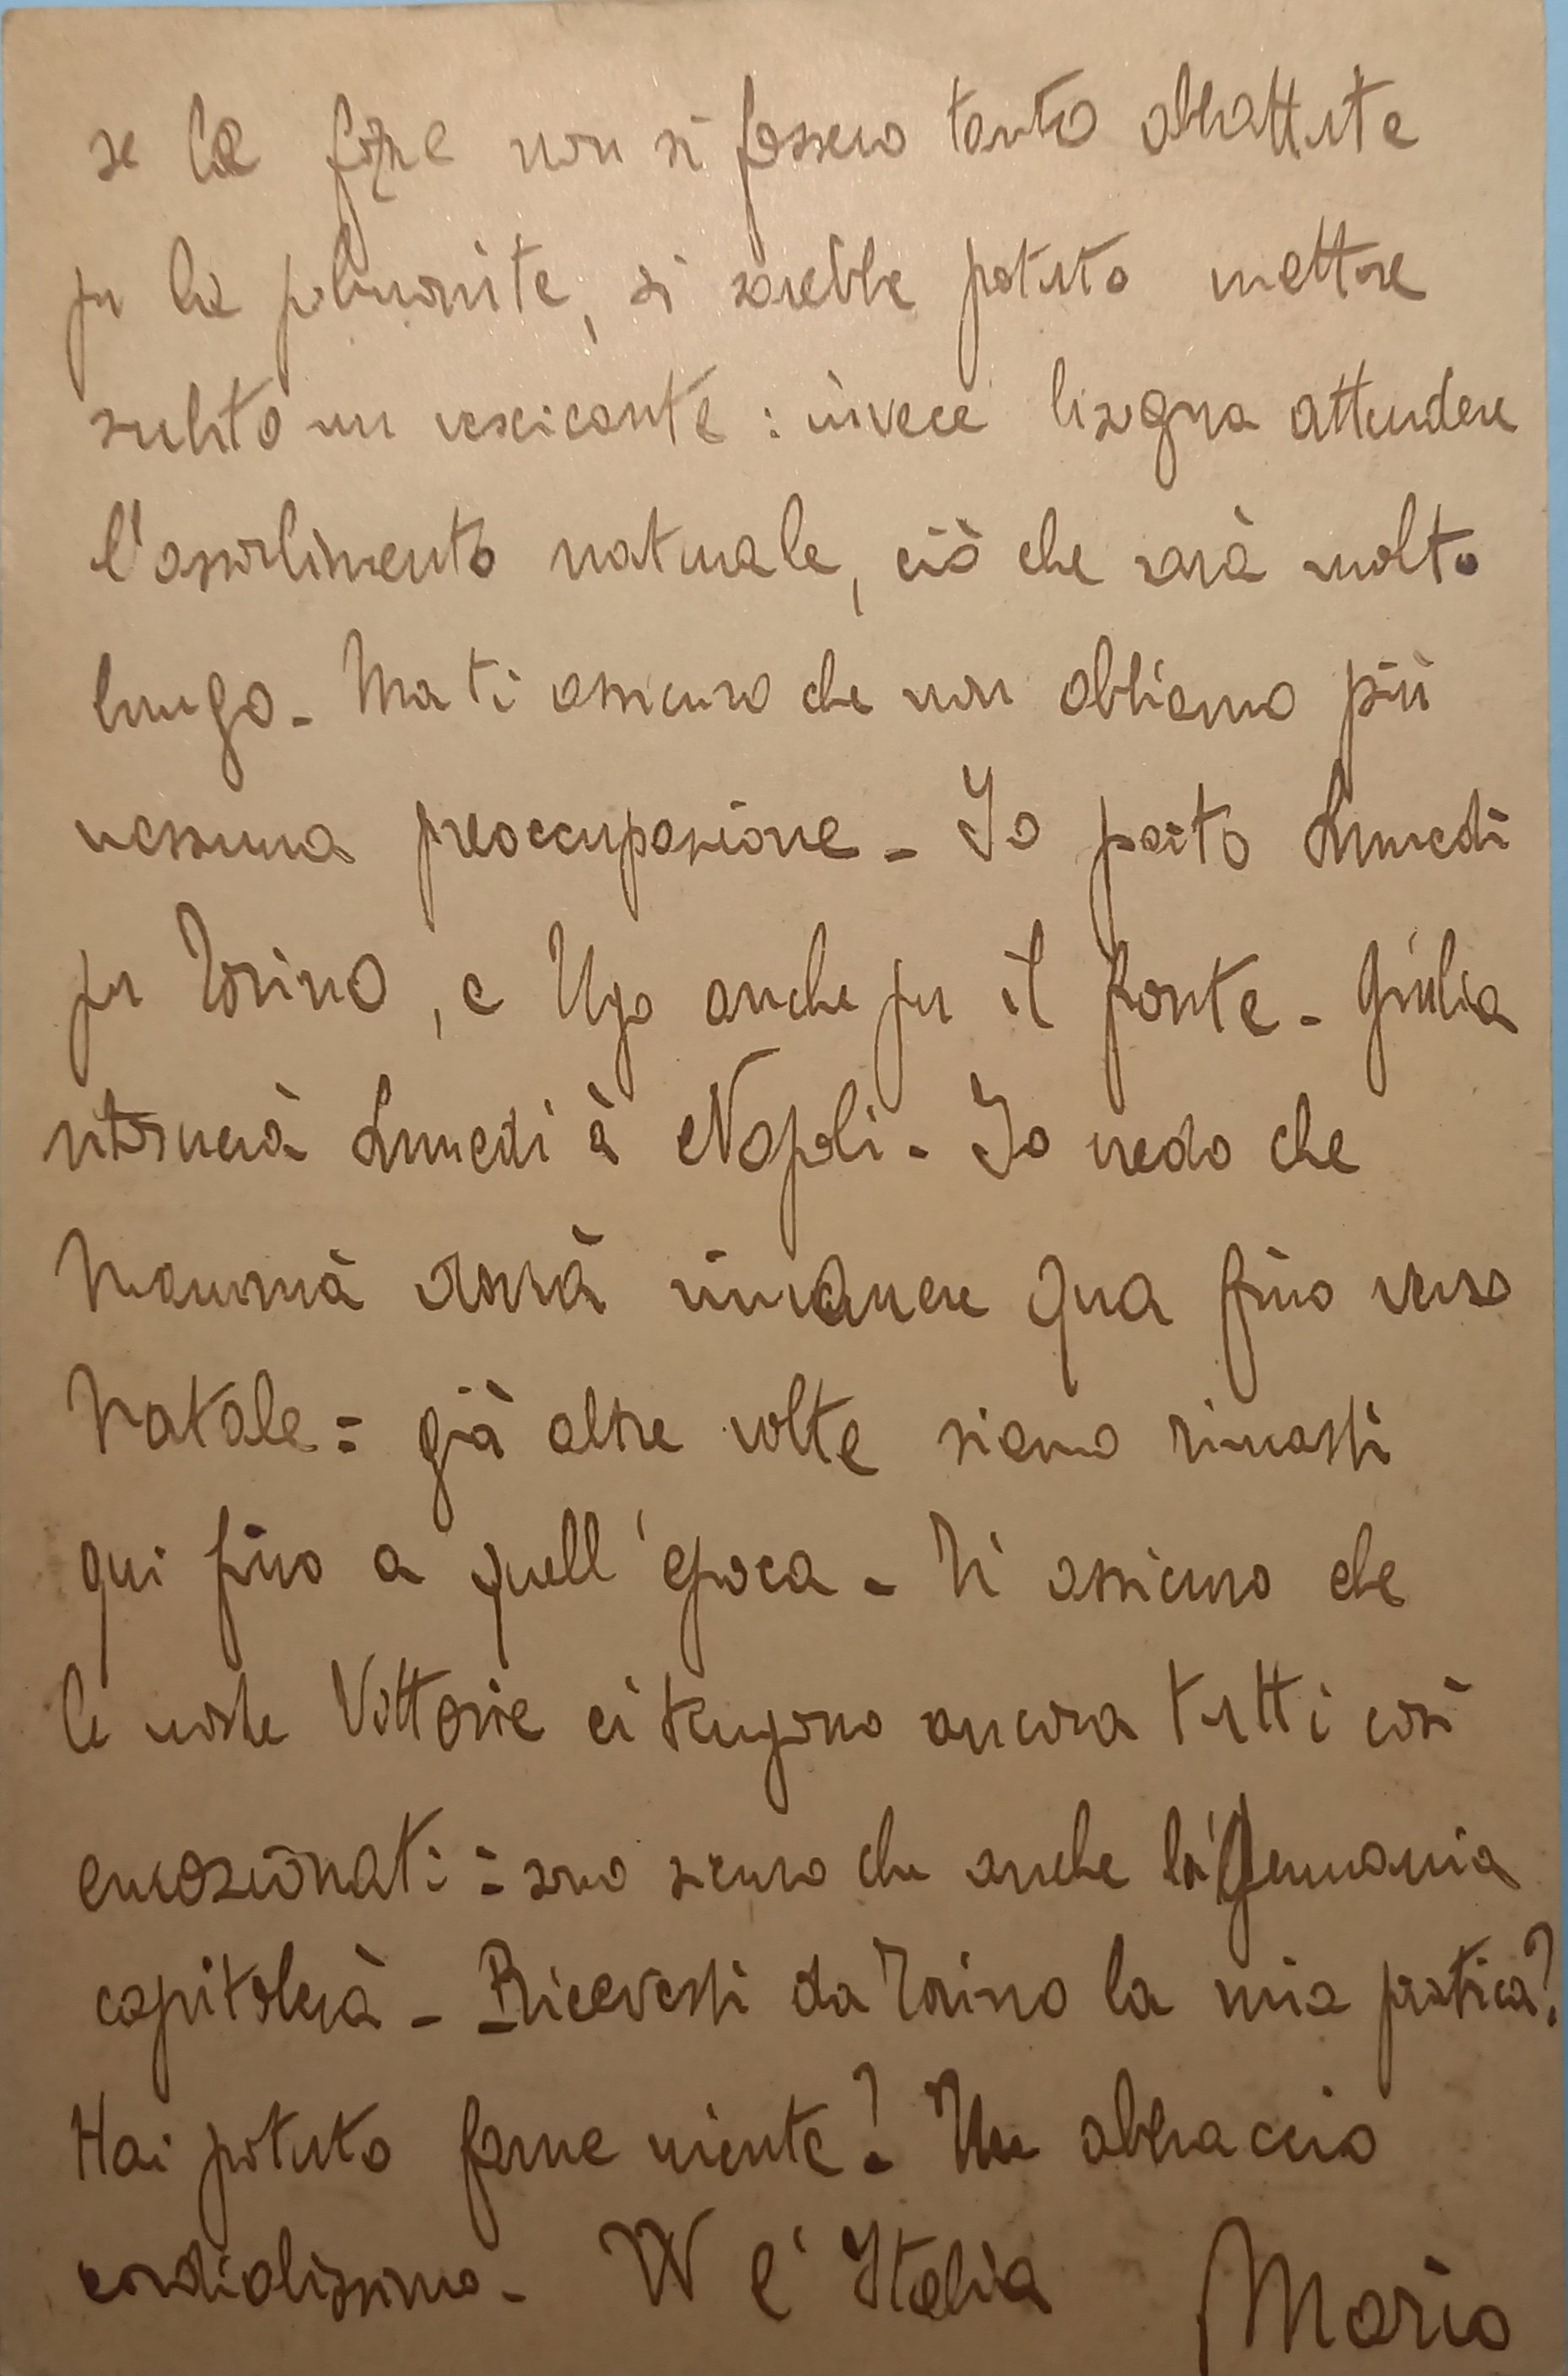 se le forze non si fossero tanto abbattute
per la polmonite, si sarebbe potuto mettere
subito un vescicante: invece bisogna attendere
l'assorbimento naturale, ciò che sarà molto
lungo - Ma ti assicuro che non abbiamo più
nessuna preoccupazione - Io parto Lunedì
per Torino, e Ugo anche per il fronte - Giulia
ritornerà Lunedì à Napoli - Io vedo che
Mammà dovrà rimanere qua fino verso
Natale: già altre volte siamo rimasti
qui fino a quell'epoca - Ti assicuro che
le nostre Vittorie ci tengono ancora tutti così
emozionati: sono sicuro che anche la Germania
capitolerà - Ricevesti da Torino la mia pratica?
Hai potuto farne niente? Un abbraccio
cordialissimo - W l'Italia Mario